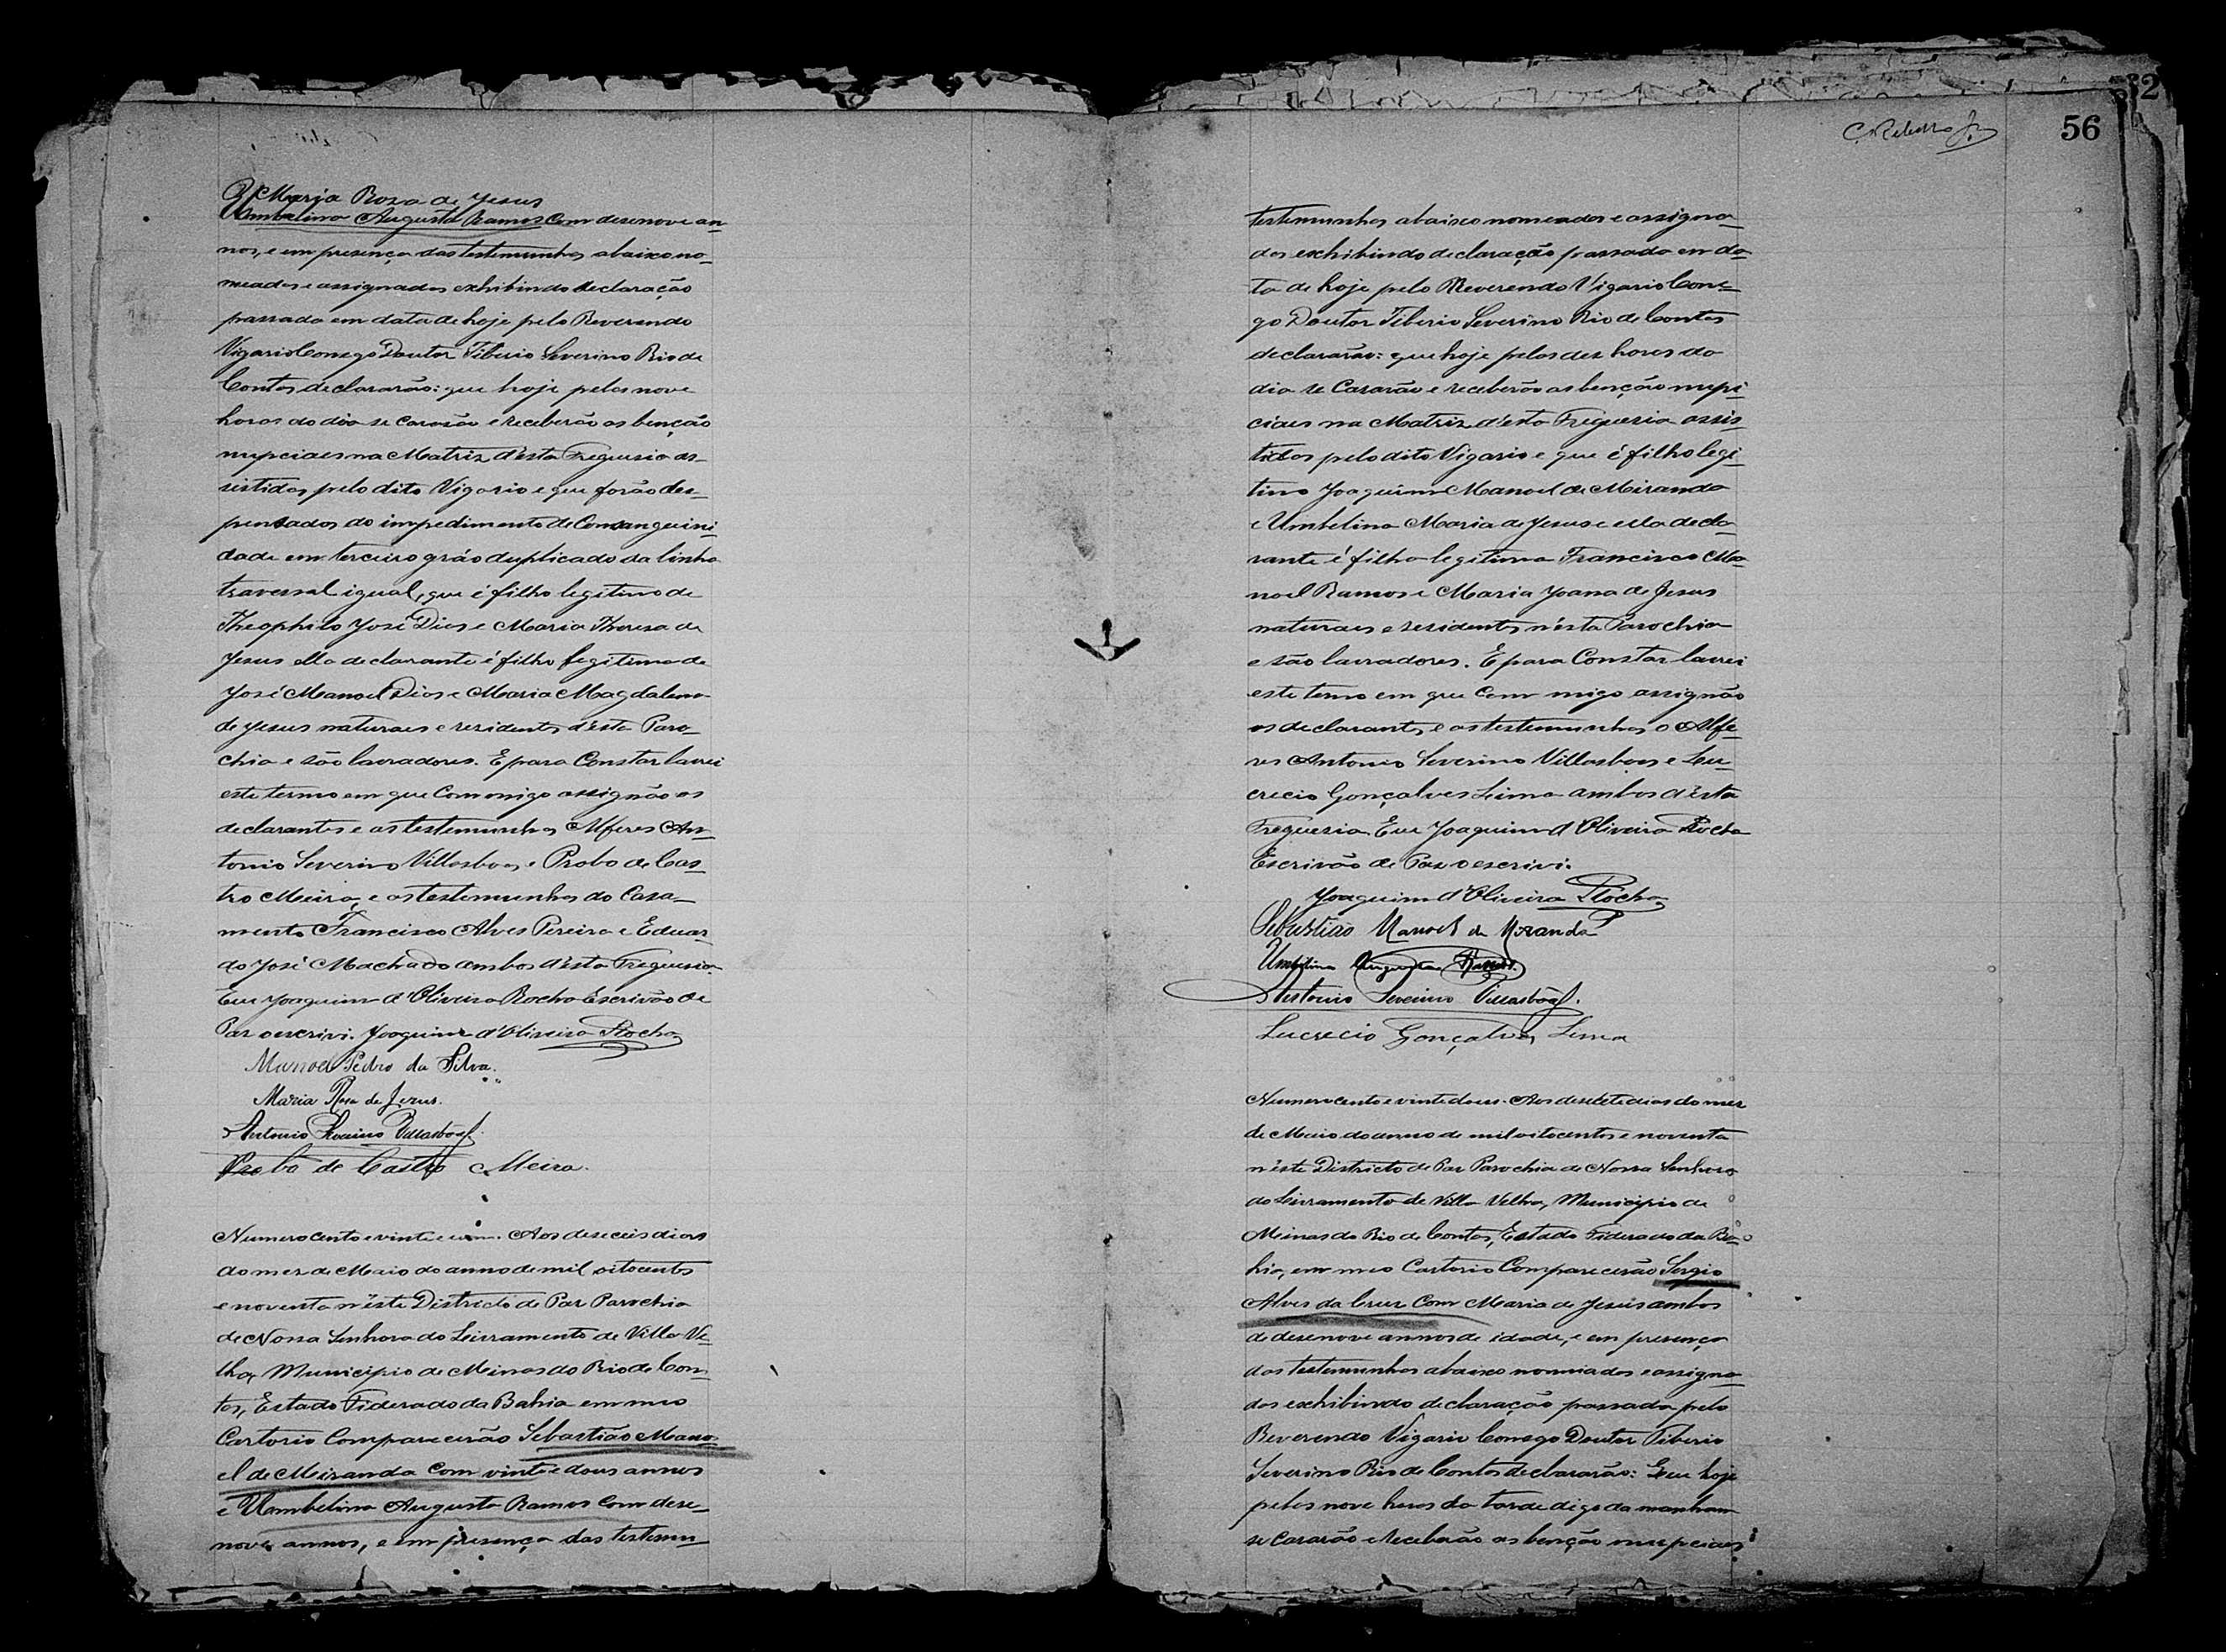 Maria Roza de Jesus
Umbelina Augusta Ramos Com desenove an
nos, e em presença das testemunhas abaixo no
meadas e assignadas exhibindo declaração
passada em data de hoje pelo Reverendo
Vigario Conego Doutor Tiberio Severino Rio de
Contas declararão: que hoje pelas nove
horas do dia se casarão e receberão as benção
nupciaes na Matriz d'esta Freguesia as-
sistidos pelo dito Vigario e que forão des-
pensados do impedimento de Consanguini
dade em terceiro gráo duplicado da linha
traversal igual, que é filho legitimo de
Theophilo José Dias e Maria Theresa de
Jesus ella declarante é filha legitima de
José Manoel Dias e Maria Magdalena
de Jesus naturaes e residentes d'esta Paro-
chia e são lavradores. E para Constar lavrei
este termo em que Commigo assignão os
declarantes e as testemunhas Alferes An
tonio Severino Villasboas e Probo de Cas
tro Meira, e as testemunhas do Casa-
mento Francisco Alves Pereira e Eduar
do José Machado ambos d'esta Freguesia.
Eu Joaquim d'Oliveira Rocha Escrivão de
Paz o escrivi. Joaquim d'Oliveira Rocha
Manoel Pedro da Silva.
Maria Rosa de Jesus.
Antonio Severino Villasbôas.
Probo de Castro Meira.
Numero cento e vinte e um. Aos deseceis dias
do mez de Maio do anno de mil oitocentos
e noventa n'este Districto de Paz Parochia
de Nossa Senhora do Livramento de Villa Ve
lha, Municipio de Minas do Rio de Con
tas, Estado Fiderado da Bahia em meo
Cartorio Comparecerão Sebastião Mano
el de Meiranda Com vinte e dous annos
e Umbelina Augusta Ramos Com dese-
nove annos, e em presença das testemu
C. Rebello Jr.
56
testemunhas abaixo nomeadas e assigna
das exhibindo declaração passada em da
ta de hoje pelo Reverendo Vigario Cone-
go Doutor Tiberio Severino Rio de Contas
declararão: que hoje pelas dez horas do
dia se Casarão e receberão as benção nupi
ciaes na Matriz d'esta Freguesia assis
tidos pelo dito Vigario e que é filho legi
timo Joaquim Manoel de Meiranda
e Umbelina Maria de Jesus e ella decla
rante é filha legitima Francisco Ma
noel Ramos e Maria Joana de Jesus
naturaes e residentes n'esta Parochia
e são lavradores. E para Constar lavrei
este termo em que Com migo assignão
os declarantes e as testemunhas o Alfe
res Antonio Severino Villasboas e Lu
crecio Gonçalves Lima ambos d'esta
Freguesia. Eu Joaquim d'Oliveira Rocha
Escrivão de Paz o escrivi.
Joaquim d'Oliveira Rocha
Sebastião Manoel de Miranda
Umbilina Augusta Ramos.
Antonio Severino Villasbôas.
Lucrecio Gonçalves Lima
Numero cento e vinte dous. Aos desecete dias do mez
de Maio do anno de mil oitocentos e noventa
n'este Districto de Paz Parochia de Nossa Senhora
do Livramento de Villa Velha, Municipio de
Minas do Rio de Contas, Estado Fiderado da Ba
hia, em meo Cartorio Comparecerão Sergio
Alves da Cruz Com Maria de Jesus ambos
de desenove annos de idade, e em presença
das testemunhas abaixo nomiadas e assigna
das exhibindo declaração passada pelo
Reverendo Vigario Conego Doutor Tiberio
Severino Rio de Contas declararão: Que hoje
pelas nove horas da tarde digo da manham
se Casarão e Receberão as benção nupciaes